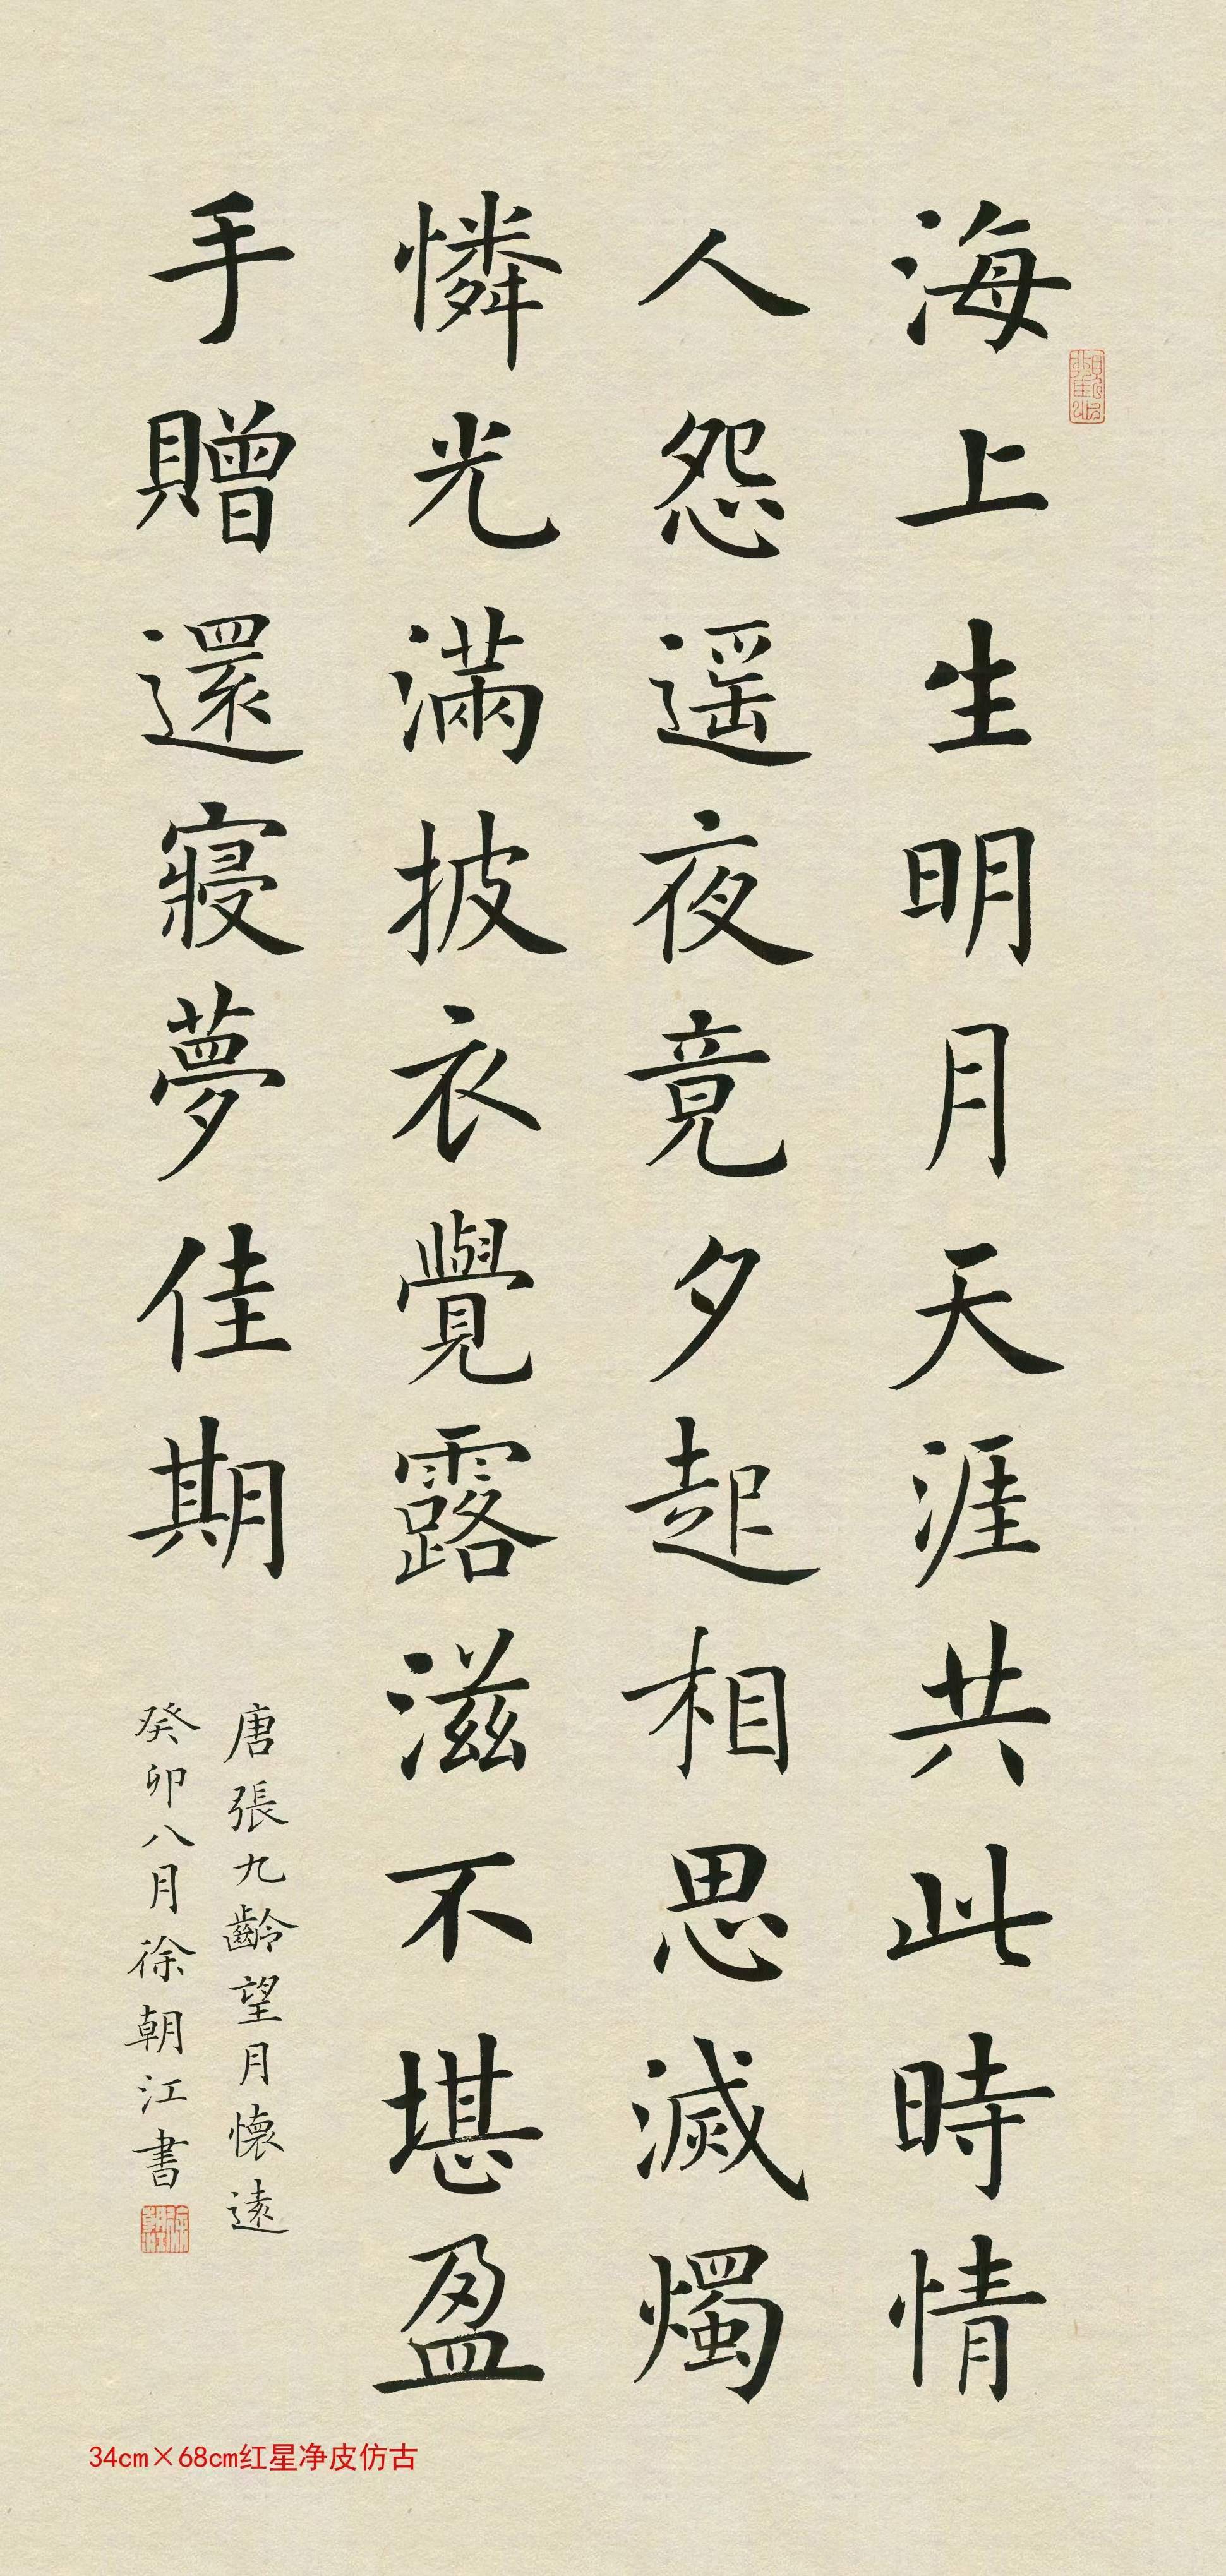 海上生明月天涯共此時情
人怨遥夜竟夕起相思滅燭
憐光滿披衣覺露滋不堪盈
手贈還寢夢佳期
唐張九齡望月懷遠
癸卯八月徐朝江書
34cm×68cm红星净皮仿古